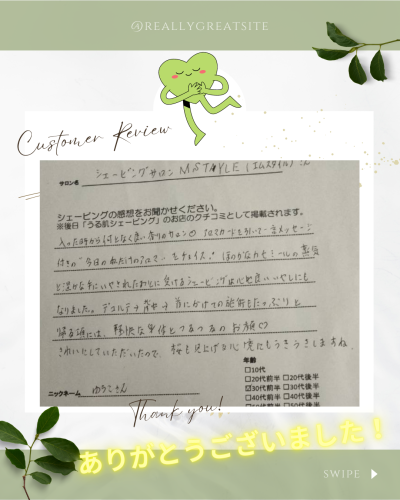 @REALLYGREATSITE
Customer Review
サロン名 シェービングサロン MSTAYLE(エムスタイル)さん
シェービングの感想をお聞かせください。
※後日「うる肌シェービング」のお店のクチコミとして掲載されます。
入った時から何となく良い香りのサロン♡ アロマカードを引いて一言メッセージ
付きの"今日の私だけのアロマ"をチョイス。ほのかなカモミールの蒸気
と温かな手にいやされたおとに受けるシェービングは心地良いいやしにも
なりました。デコルテ→背中→首にかけての施術もたっぷりと
帰る頃には、軽快な身体とつるつるのお顔♡
きれいにしていただいたので、桜を見上げる心境にもうきうきしますね
年齢
□10代
□20代前半 □20代後半
☑30代前半 □30代後半
□40代前半 □40代後半
□50代前半 □50代後半
ニックネーム ゆうこさん
Thank you!
ありがとうございました!
SWIPE